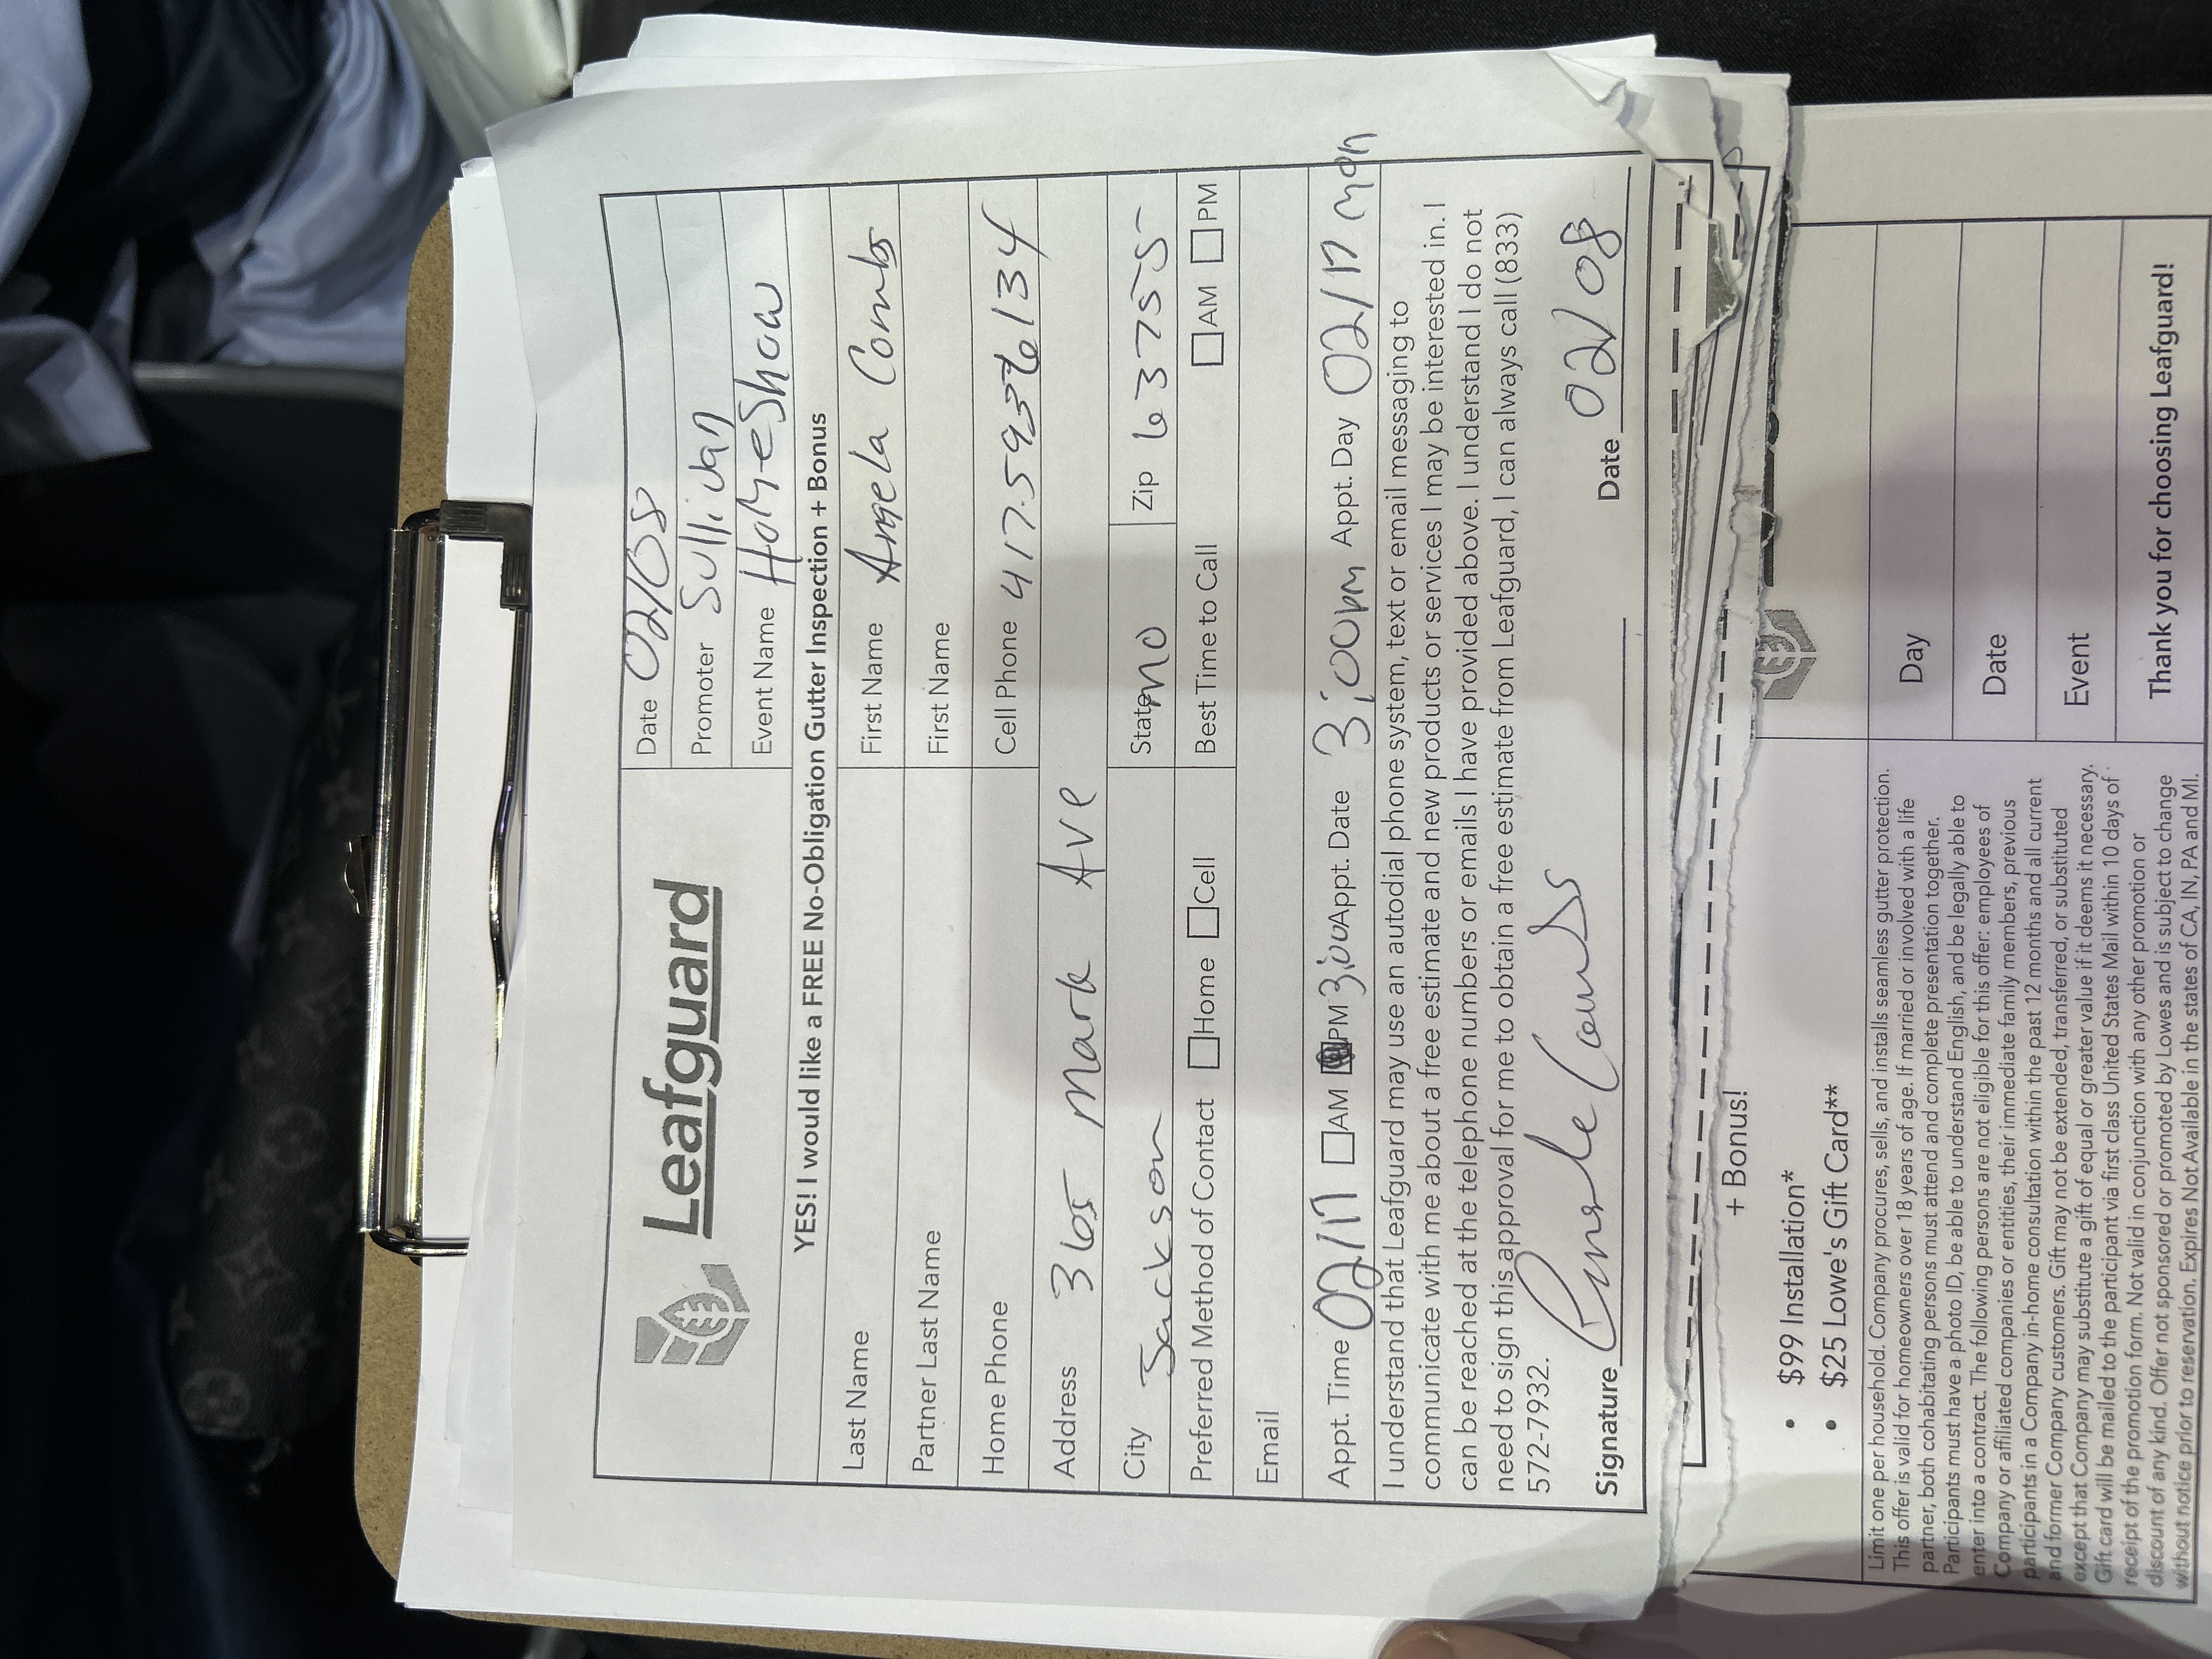 Leafguard
Date 02/08
Promoter Sullivan
Event Name HomeShow
YES! I would like a FREE No-Obligation Gutter Inspection + Bonus
Last Name
First Name Angela Combs
Partner Last Name
First Name
Home Phone
Cell Phone 417.593 6134
Address 365 Mark Ave
City Jackson
State MO Zip 63755
Preferred Method of Contact Home Cell
Best Time to Call AM PM
Email
Appt. Time 02/17 AM PM 3:00 Appt. Date 3:00pm Appt. Day 02/17 mon
I understand that Leafguard may use an autodial phone system, text or email messaging to
communicate with me about a free estimate and new products or services I may be interested in. I
can be reached at the telephone numbers or emails I have provided above. I understand I do not
need to sign this approval for me to obtain a free estimate from Leafguard, I can always call (833)
572-7932.
Signature Angela Combs Date 02/08
+ Bonus!
• $99 Installation*
• $25 Lowe's Gift Card**
Limit one per household. Company procures, sells, and installs seamless gutter protection.
This offer is valid for homeowners over 18 years of age. If married or involved with a life
partner, both cohabitating persons must attend and complete presentation together.
Participants must have a photo ID, be able to understand English, and be legally able to
enter into a contract. The following persons are not eligible for this offer: employees of
Company or affiliated companies or entities, their immediate family members, previous
participants in a Company in-home consultation within the past 12 months and all current
and former Company customers. Gift may not be extended, transferred, or substituted
except that Company may substitute a gift of equal or greater value if it deems it necessary.
Gift card will be mailed to the participant via first class United States Mail within 10 days of
receipt of the promotion form. Not valid in conjunction with any other promotion or
discount of any kind. Offer not sponsored or promoted by Lowes and is subject to change
without notice prior to reservation. Expires Not Available in the states of CA, IN, PA and MI.
Day
Date
Event
Thank you for choosing Leafguard!